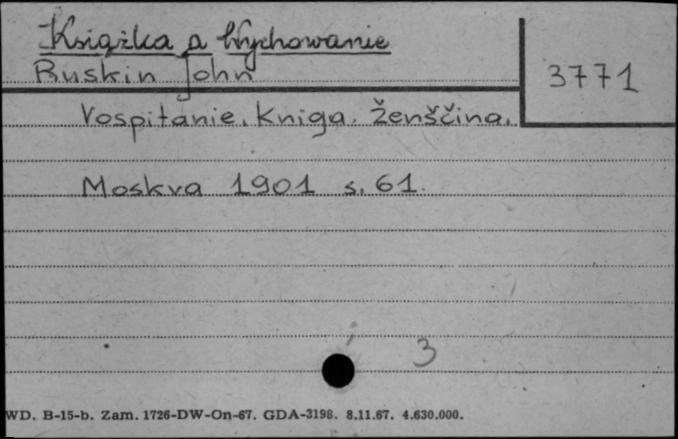 Książka a Wychowanie
Ruskin John
3771
Vospitanie. Kniga. Ženščina.
Moskva 1901 s. 61.
3
WD. B-15-b. Zam. 1726-DW-On-67. GDA-3198. 8.11.67. 4.630.000.